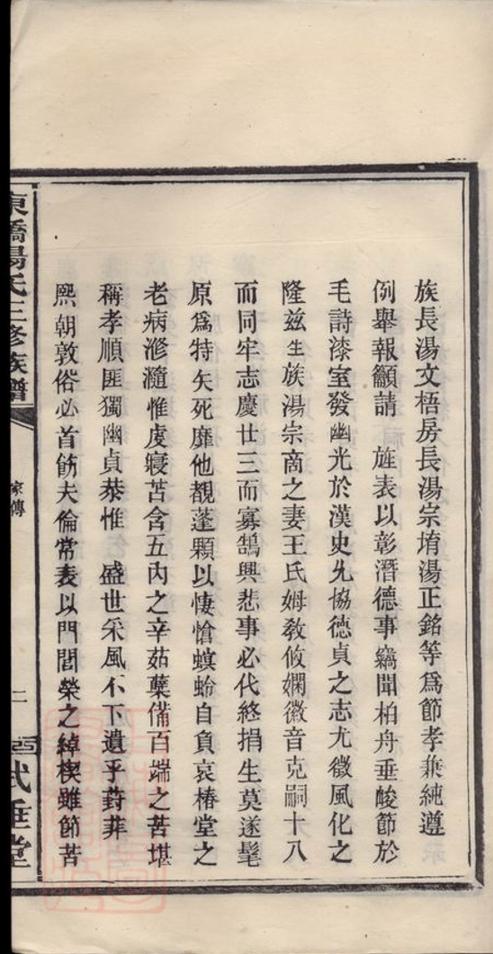 族長湯文梧房長湯宗堉湯正銘等爲節孝兼純遵
例舉報籲請 旌表以彰潛德事竊聞柏舟垂峻節於
毛詩漆室發幽光於漢史允協德貞之志尤徵風化之
隆兹生族湯宗商之妻王氏姆敎攸嫻徽音克嗣十八
而同牢志慶廿三而寡鵠興悲事必代終捐生莫遂髦
原爲特矢死靡他覩蓬顆以悽愴螟蛉自負哀椿堂之
老病滫瀡惟虔寢苫含五內之辛茹蘗備百端之苦堪
稱孝順匪獨幽貞恭惟 盛世采風不下遺乎葑菲
熙朝敦俗必首飭夫倫常表以門閭榮之綽楔雖節苦
東橋湯氏三修族譜
家傳
二
武垂堂